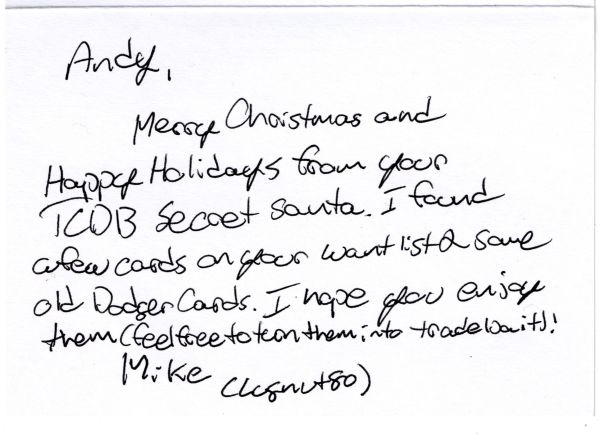 Andy,
Merry Christmas and
Happy Holidays from your
TCDB Secret Santa. I found
a few cards on your wantlist & some
old Dodger Cards. I hope you enjoy
them (feel free to turn them into trade bait)!
Mike